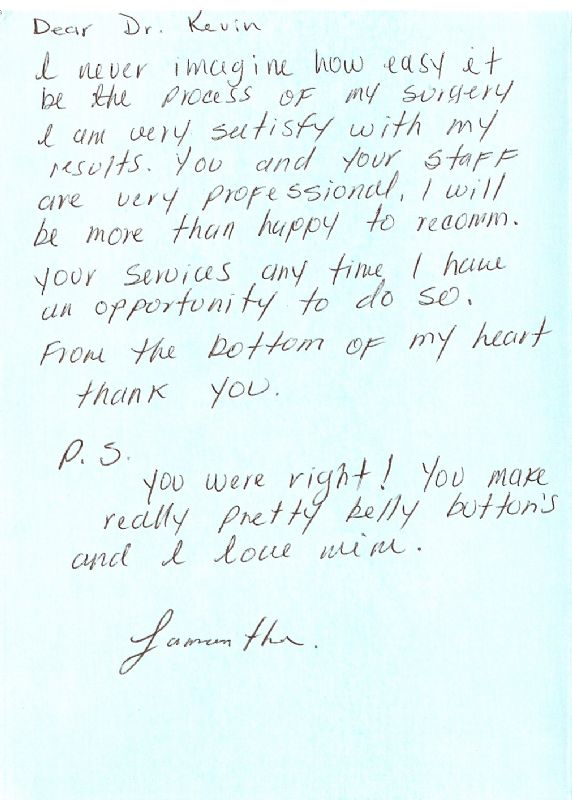 Dear Dr. Kevin
I never imagine how easy it
be the process of my surgery
I am very satisfy with my
results. You and your staff
are very professional, I will
be more than happy to recomm.
your services any time I have
an opportunity to do so.
From the bottom of my heart
thank you.
P.S.
you were right! You make
really pretty belly button's
and I love mine.
Samantha.